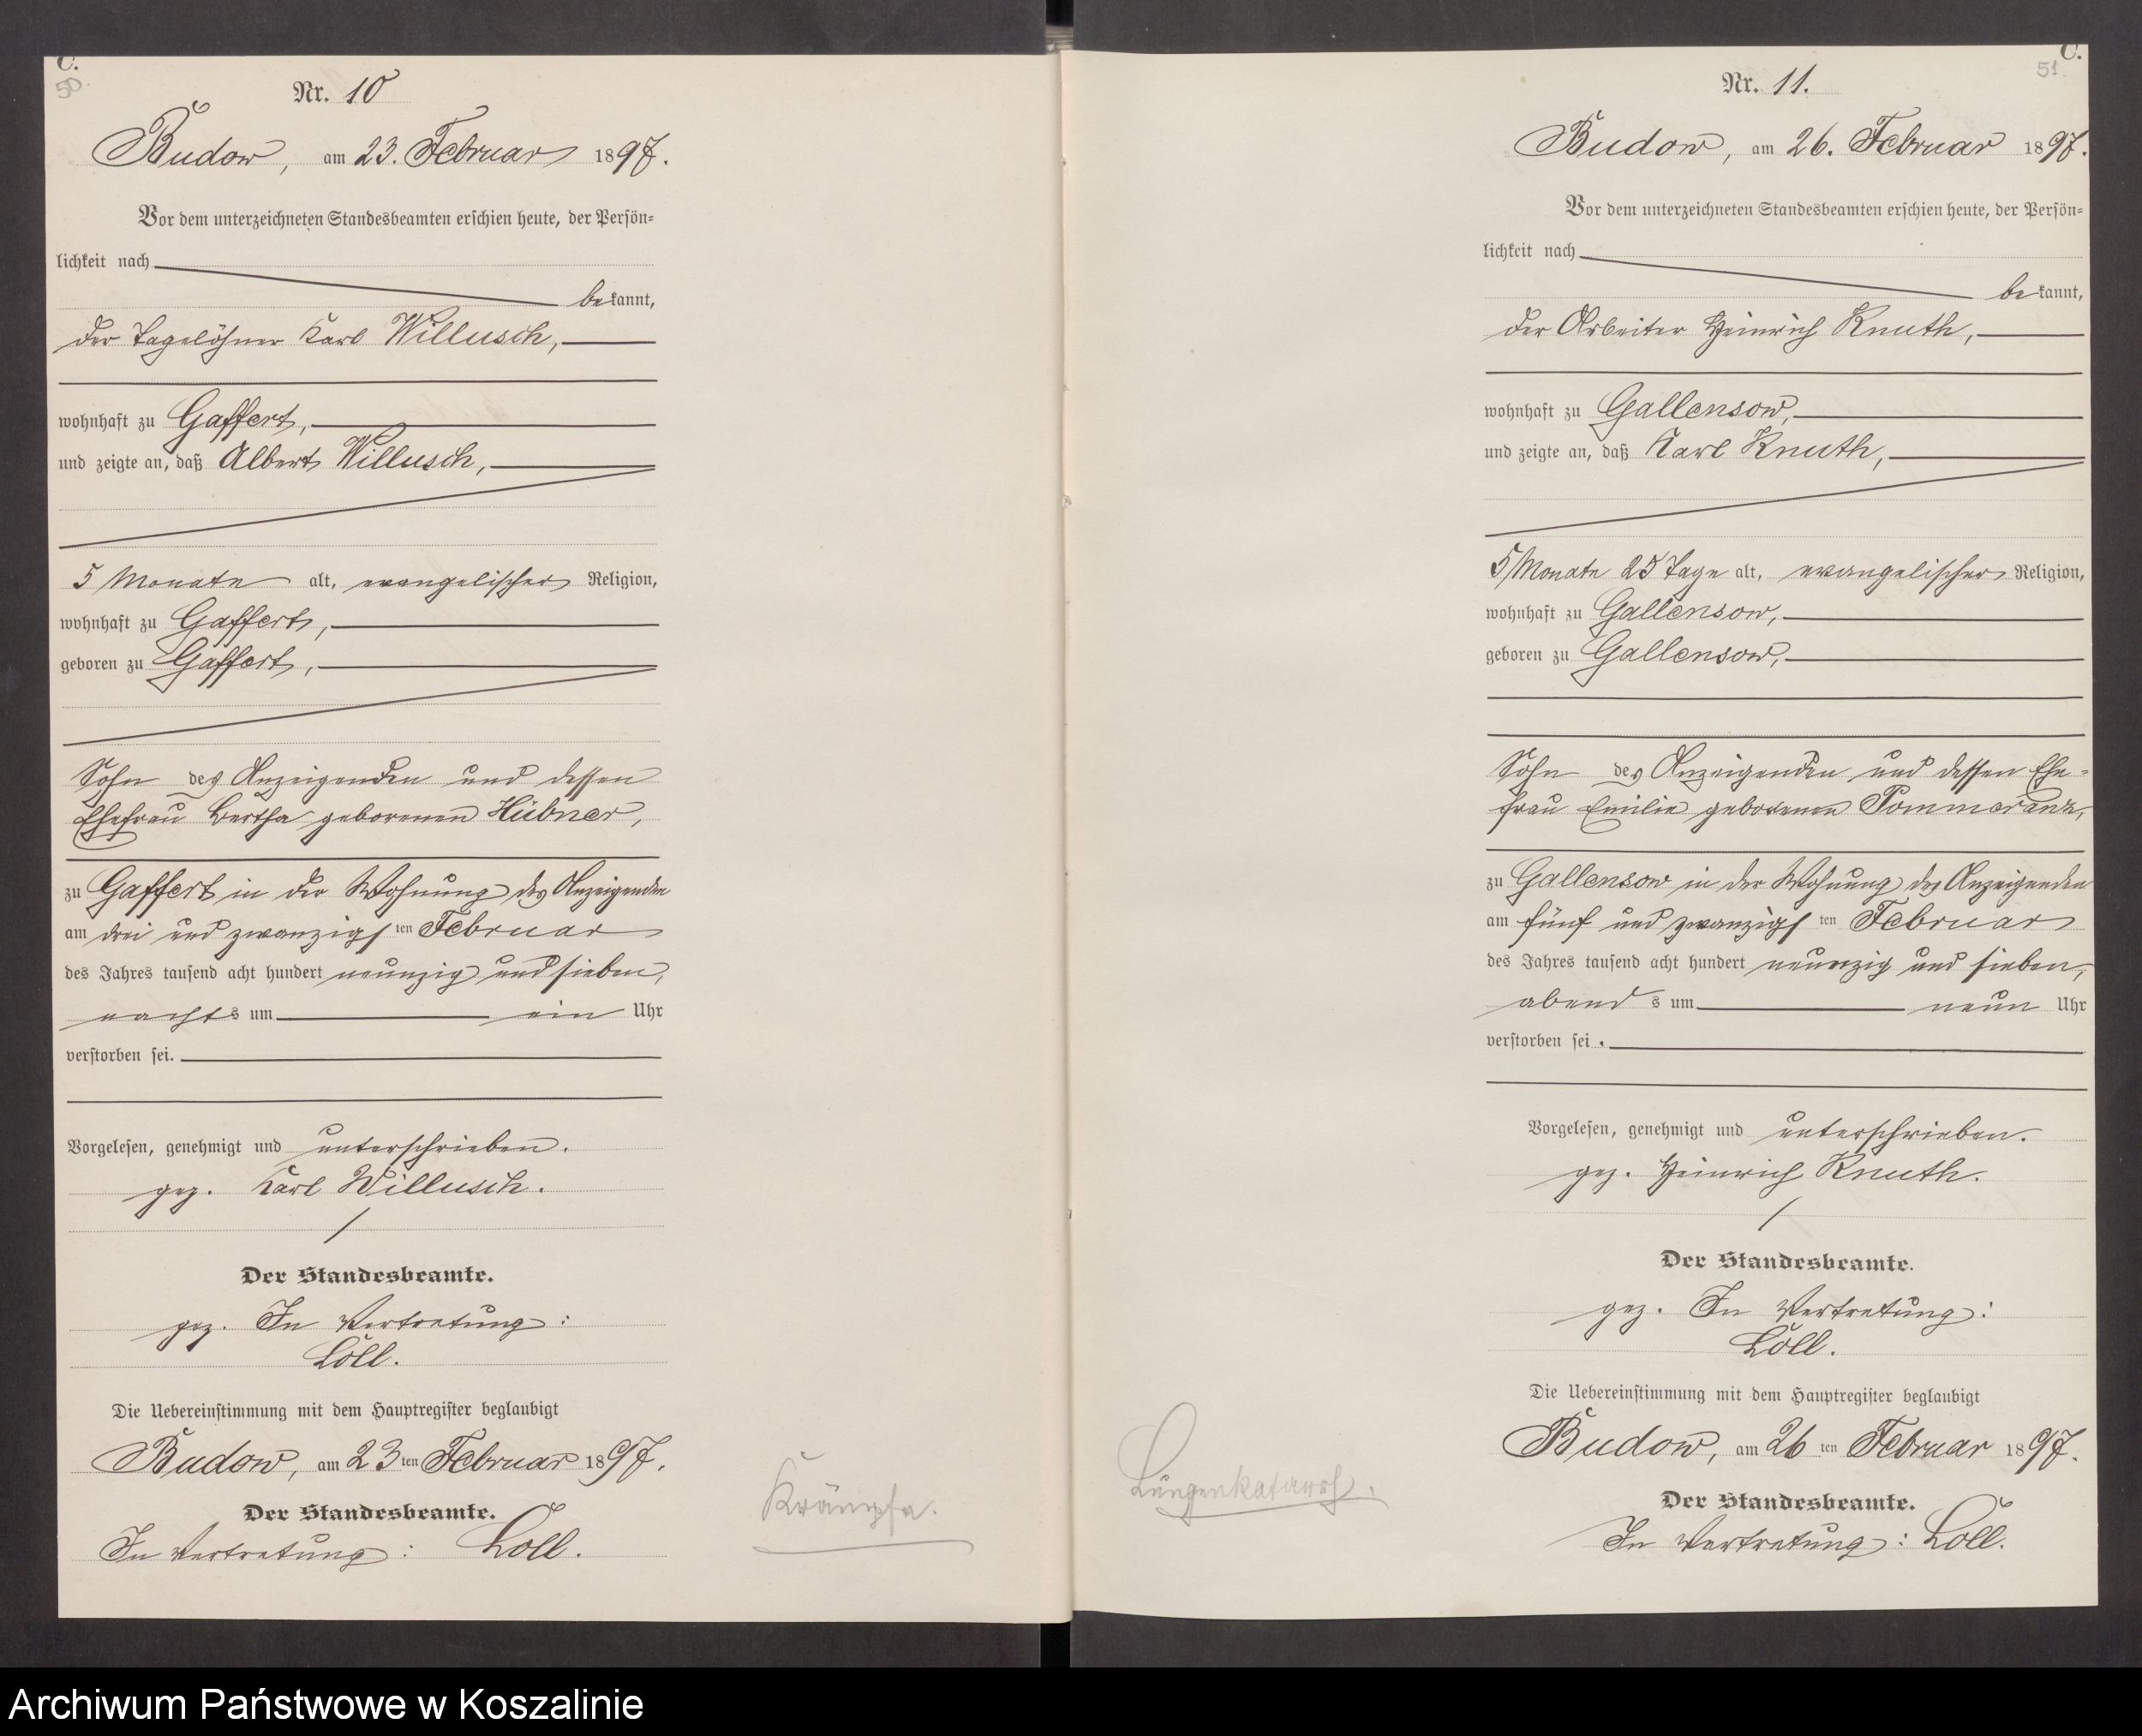 C.
50.
Nr. 10
Budow, am 23. Februar 1897.
Vor dem unterzeichneten Standesbeamten erschien heute, der Persön=
lichkeit nach
bekannt,
der Tagelöhner Karl Willusch,
wohnhaft zu Gaffert,
und zeigte an, daß Albert Willusch,
5 Monate alt, evangelischer Religion,
wohnhaft zu Gaffert,
geboren zu Gaffert,
Sohn des Anzeigenden und dessen
Ehefrau Bertha geborenen Hübner,
zu Gaffert in der Wohnung des Anzeigenden
am drei und zwanzigsten Februar
des Jahres tausend acht hundert neunzig und sieben,
nachts um ein Uhr
verstorben sei.
Vorgelesen, genehmigt und unterschrieben.
gez. Karl Willusch.
Der Standesbeamte.
gez. In Vertretung:
Löll.
Die Uebereinstimmung mit dem Hauptregister beglaubigt
Budow, am 23ten Februar 1897.
Der Standesbeamte.
In Vertretung: Löll.
Krämpfe.
C.
51.
Nr. 11.
Budow, am 26. Februar 1897.
Vor dem unterzeichneten Standesbeamten erschien heute, der Persön=
lichkeit nach
bekannt,
der Arbeiter Heinrich Knuth,
wohnhaft zu Gallensow,
und zeigte an, daß Karl Knuth,
5 Monate 25 Tage alt, evangelischer Religion,
wohnhaft zu Gallensow,
geboren zu Gallensow,
Sohn des Anzeigenden und dessen Ehe=
frau Emilie geborenen Pommeranz,
zu Gallensow in der Wohnung des Anzeigenden
am fünf und zwanzigsten Februar
des Jahres tausend acht hundert neunzig und sieben,
abends um neun Uhr
verstorben sei.
Vorgelesen, genehmigt und unterschrieben.
gez. Heinrich Knuth.
Der Standesbeamte.
gez. In Vertretung:
Löll.
Die Uebereinstimmung mit dem Hauptregister beglaubigt
Budow, am 26ten Februar 1897.
Der Standesbeamte.
In Vertretung: Löll.
Lungenkatarrh.
Archiwum Państwowe w Koszalinie